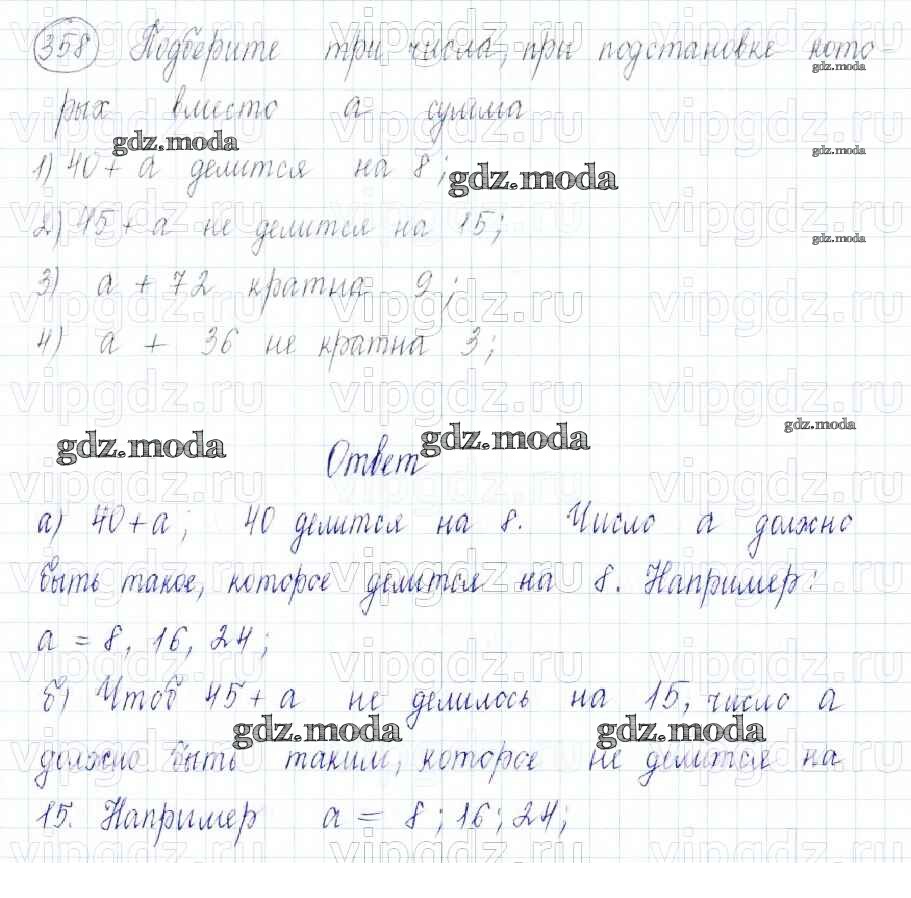 358 Подберите три числа, при подстановке кото-
рых вместо а сумма
1) 40 + а делится на 8;
2) 45 + а не делится на 15;
3) а + 72 кратна 9;
4) а + 36 не кратна 3;
Ответ
а) 40+а; 40 делится на 8. Число а должно
быть такое, которое делится на 8. Например:
а = 8, 16, 24;
б) Чтоб 45+а не делилось на 15, число а
должно быть таким, которое не делится на
15. Например а = 8; 16; 24;
gdz.moda
gdz.moda
gdz.moda
gdz.moda
gdz.moda
gdz.moda
gdz.moda
gdz.moda
gdz.moda
gdz.moda
vipgdz.ru